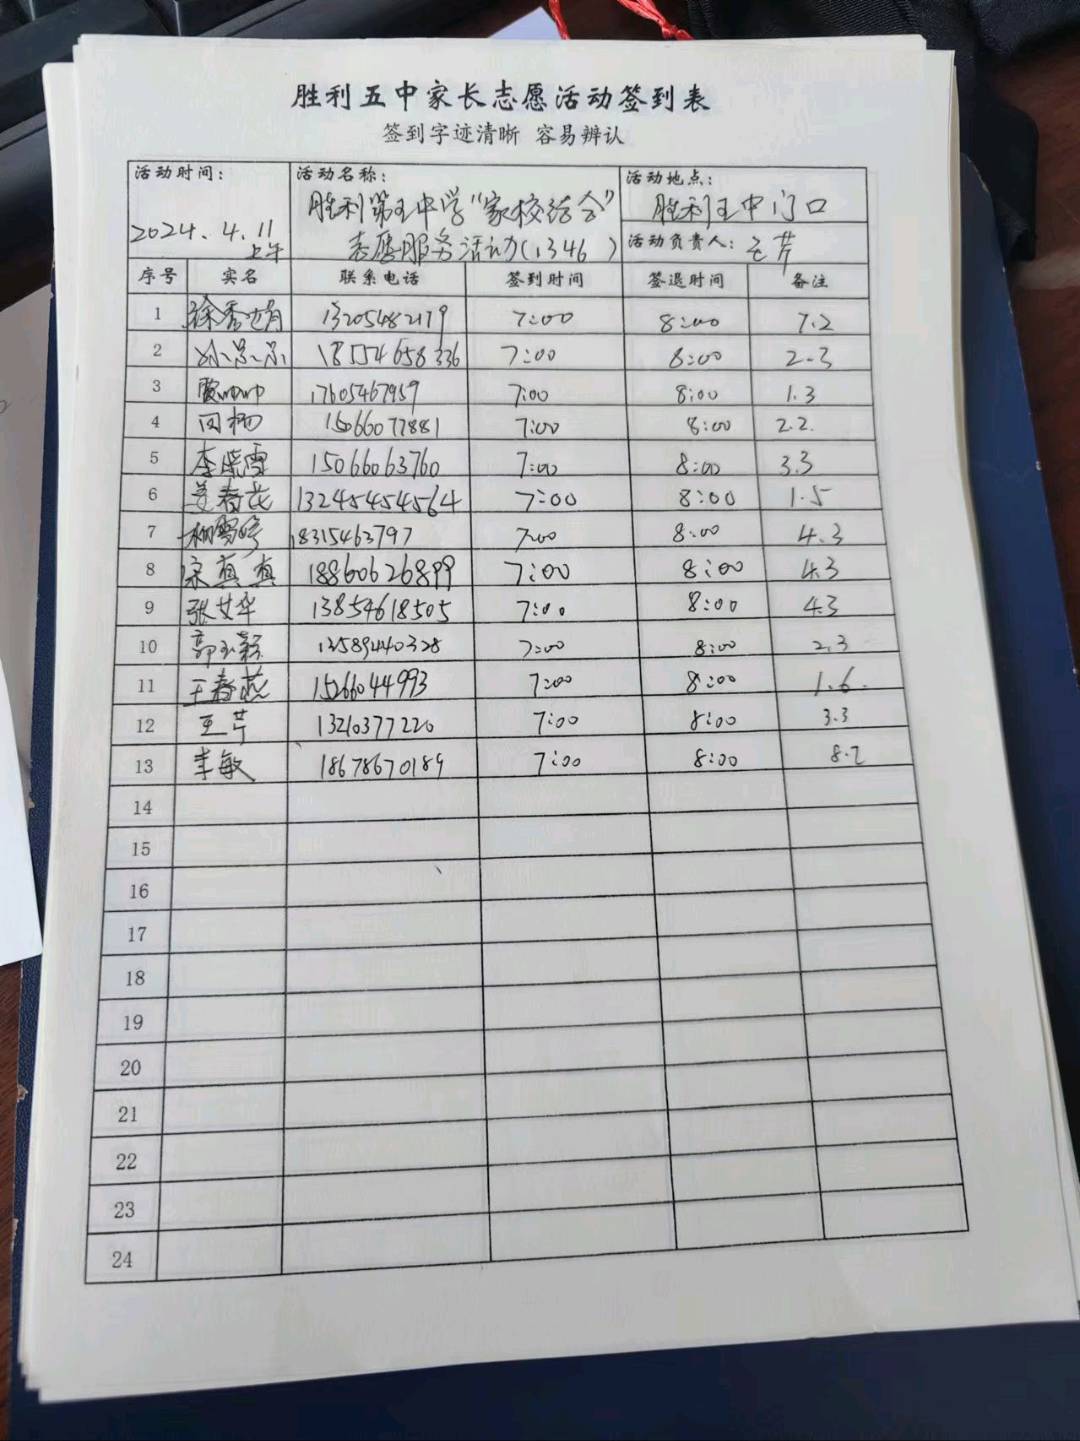 胜利五中家长志愿活动签到表
签到字迹清晰 容易辨认
活动时间: 2024.4.11 上午
活动名称: 胜利第五中学"家校结合" 志愿服务活动(1346)
活动地点: 胜利五中门口
活动负责人: 王芹
序号 实名 联系电话 签到时间 签退时间 备注
1 徐秀娟 13205482179 7:00 8:00 7.2
2 18554658336 7:00 8:00 2.3
3 17605467959 7:00 8:00 1.3
4 田杨 15066077881 7:00 8:00 2.2.
5 李晓雪 15066063760 7:00 8:00 3.3
6 姜春花 13245454564 7:00 8:00 1.5
7 柳雪婷 18315463797 7:00 8:00 4.3
8 宋真真 18860626899 7:00 8:00 4.3
9 张艾华 13854618505 7:00 8:00 4.3
10 郭玉颖 13589440328 7:00 8:00 2.3
11 王春燕 15266044993 7:00 8:00 1.6.
12 王芹 13210377220 7:00 8:00 3.3
13 李敏 18678670189 7:00 8:00 8.2
14
15
16
17
18
19
20
21
22
23
24